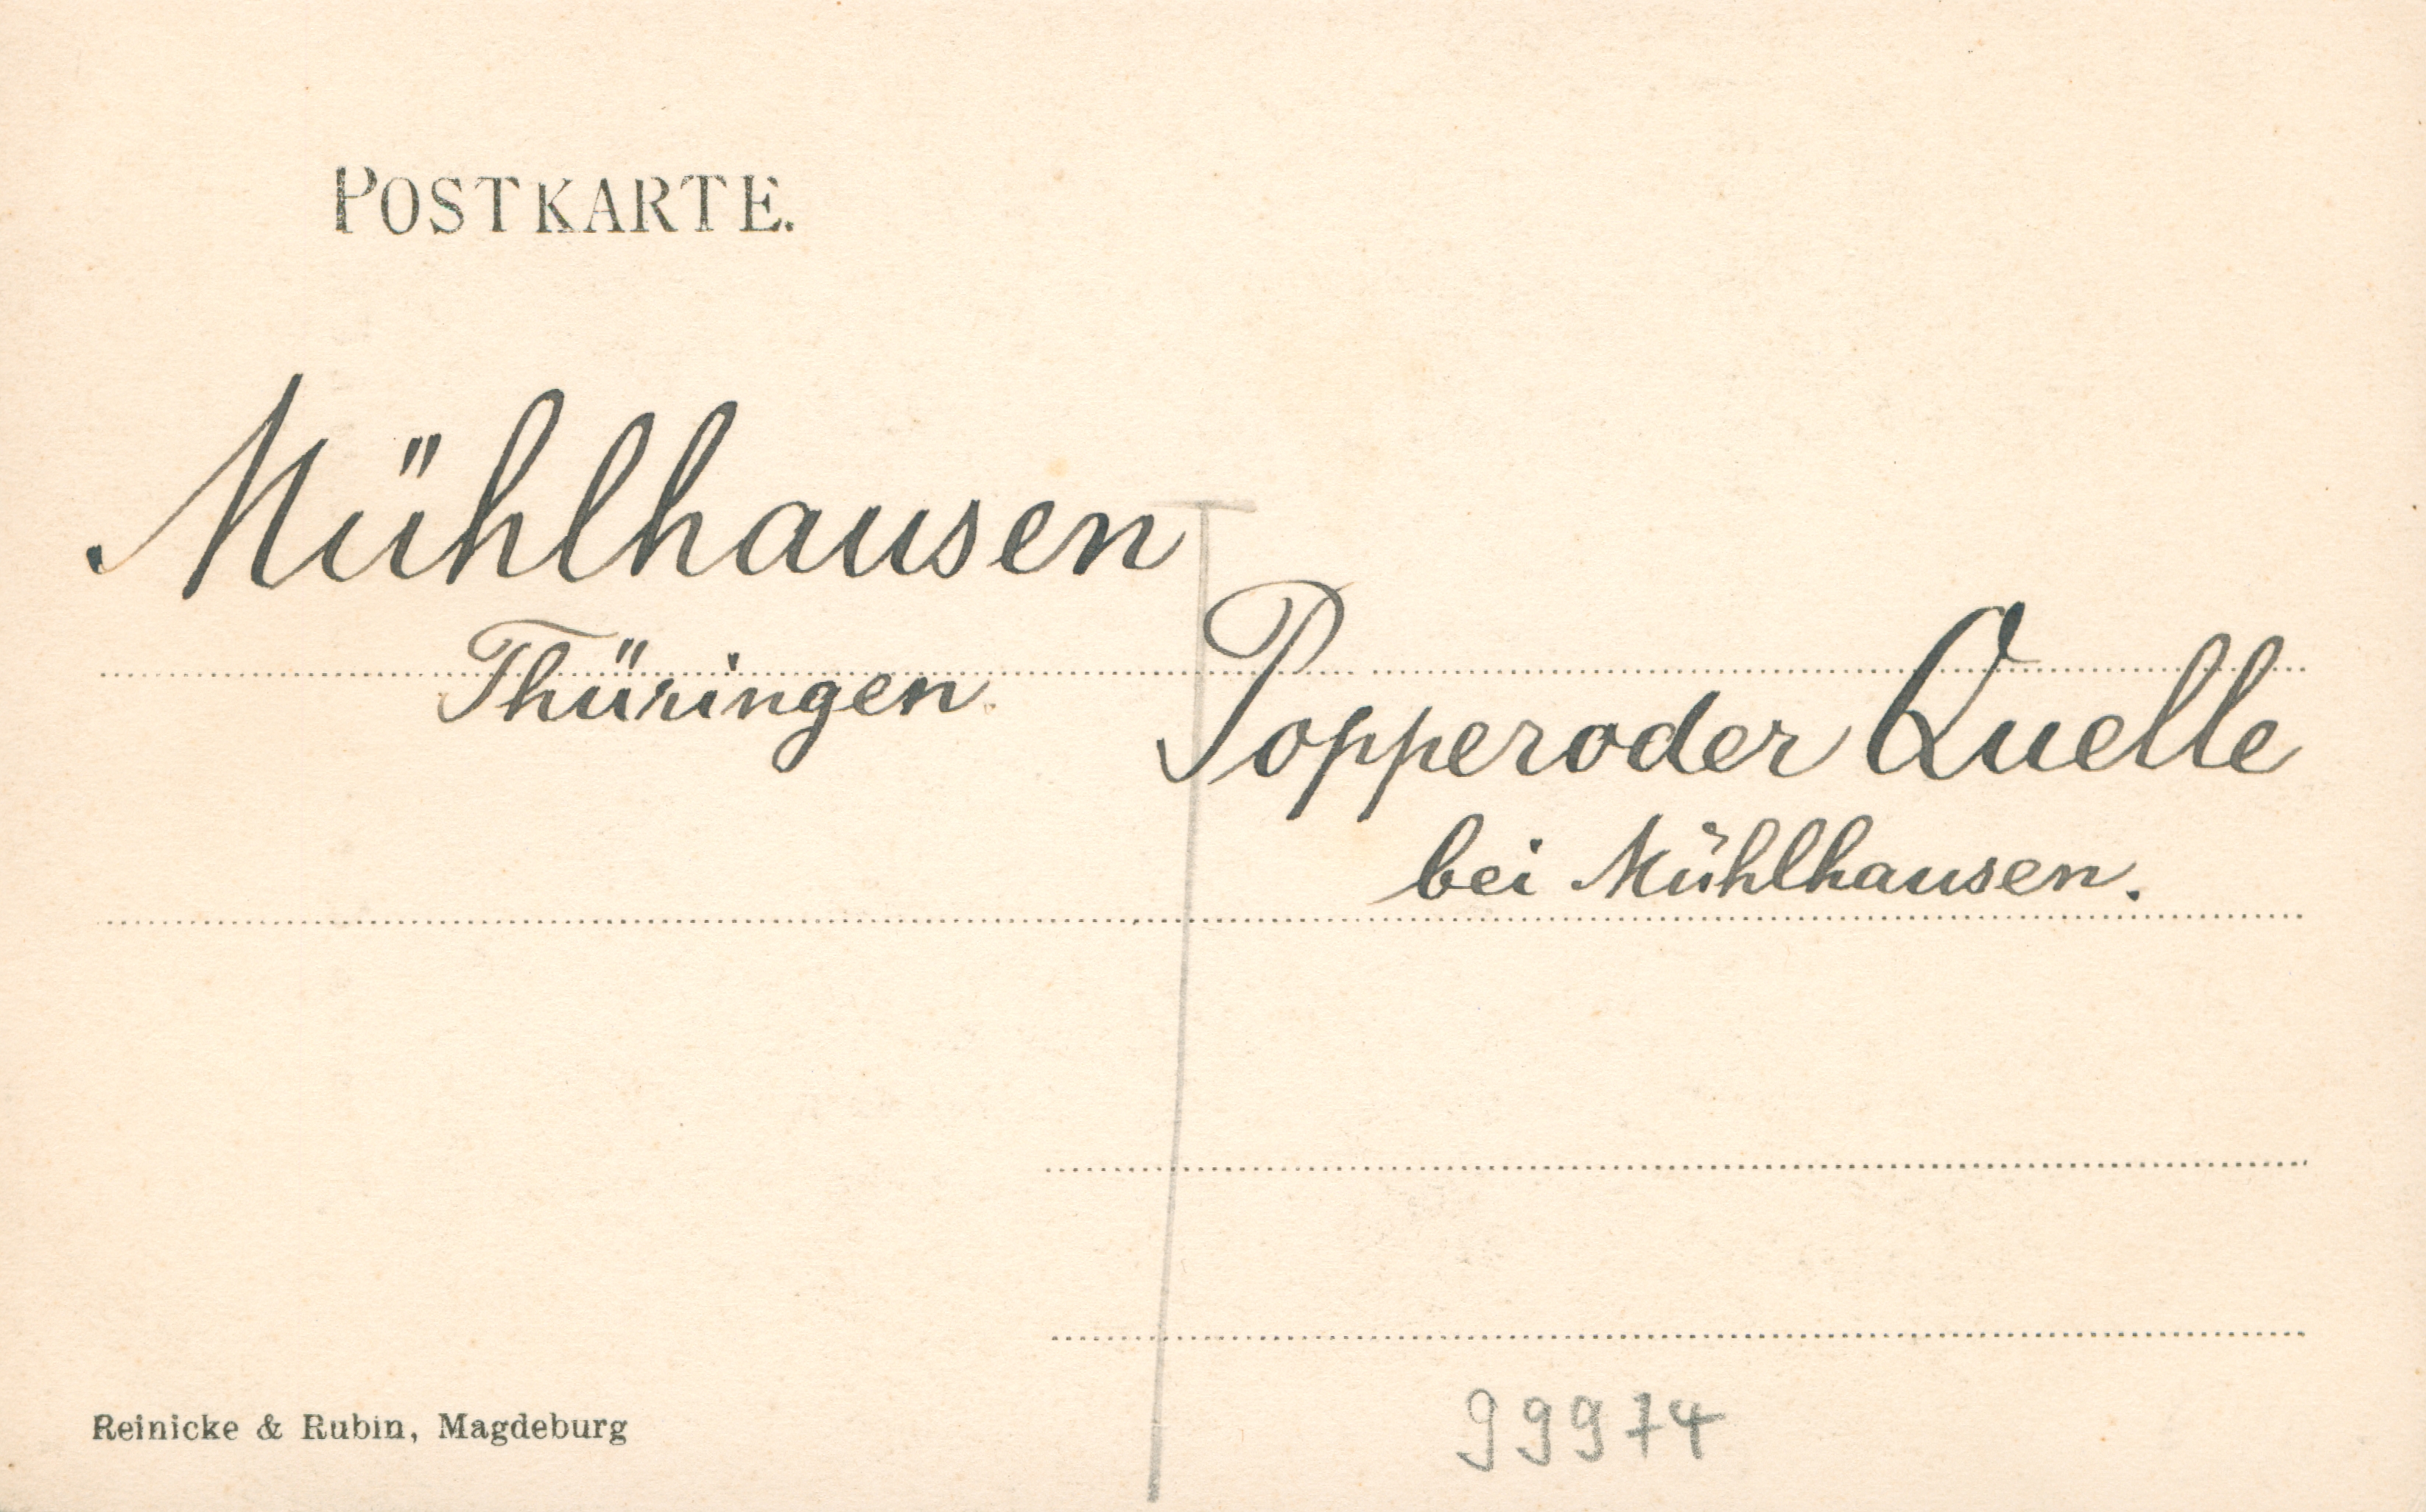 POSTKARTE.
Mühlhausen
Thüringen.
Popperoder Quelle
bei Mühlhausen.
Reinicke & Rubin, Magdeburg
99974